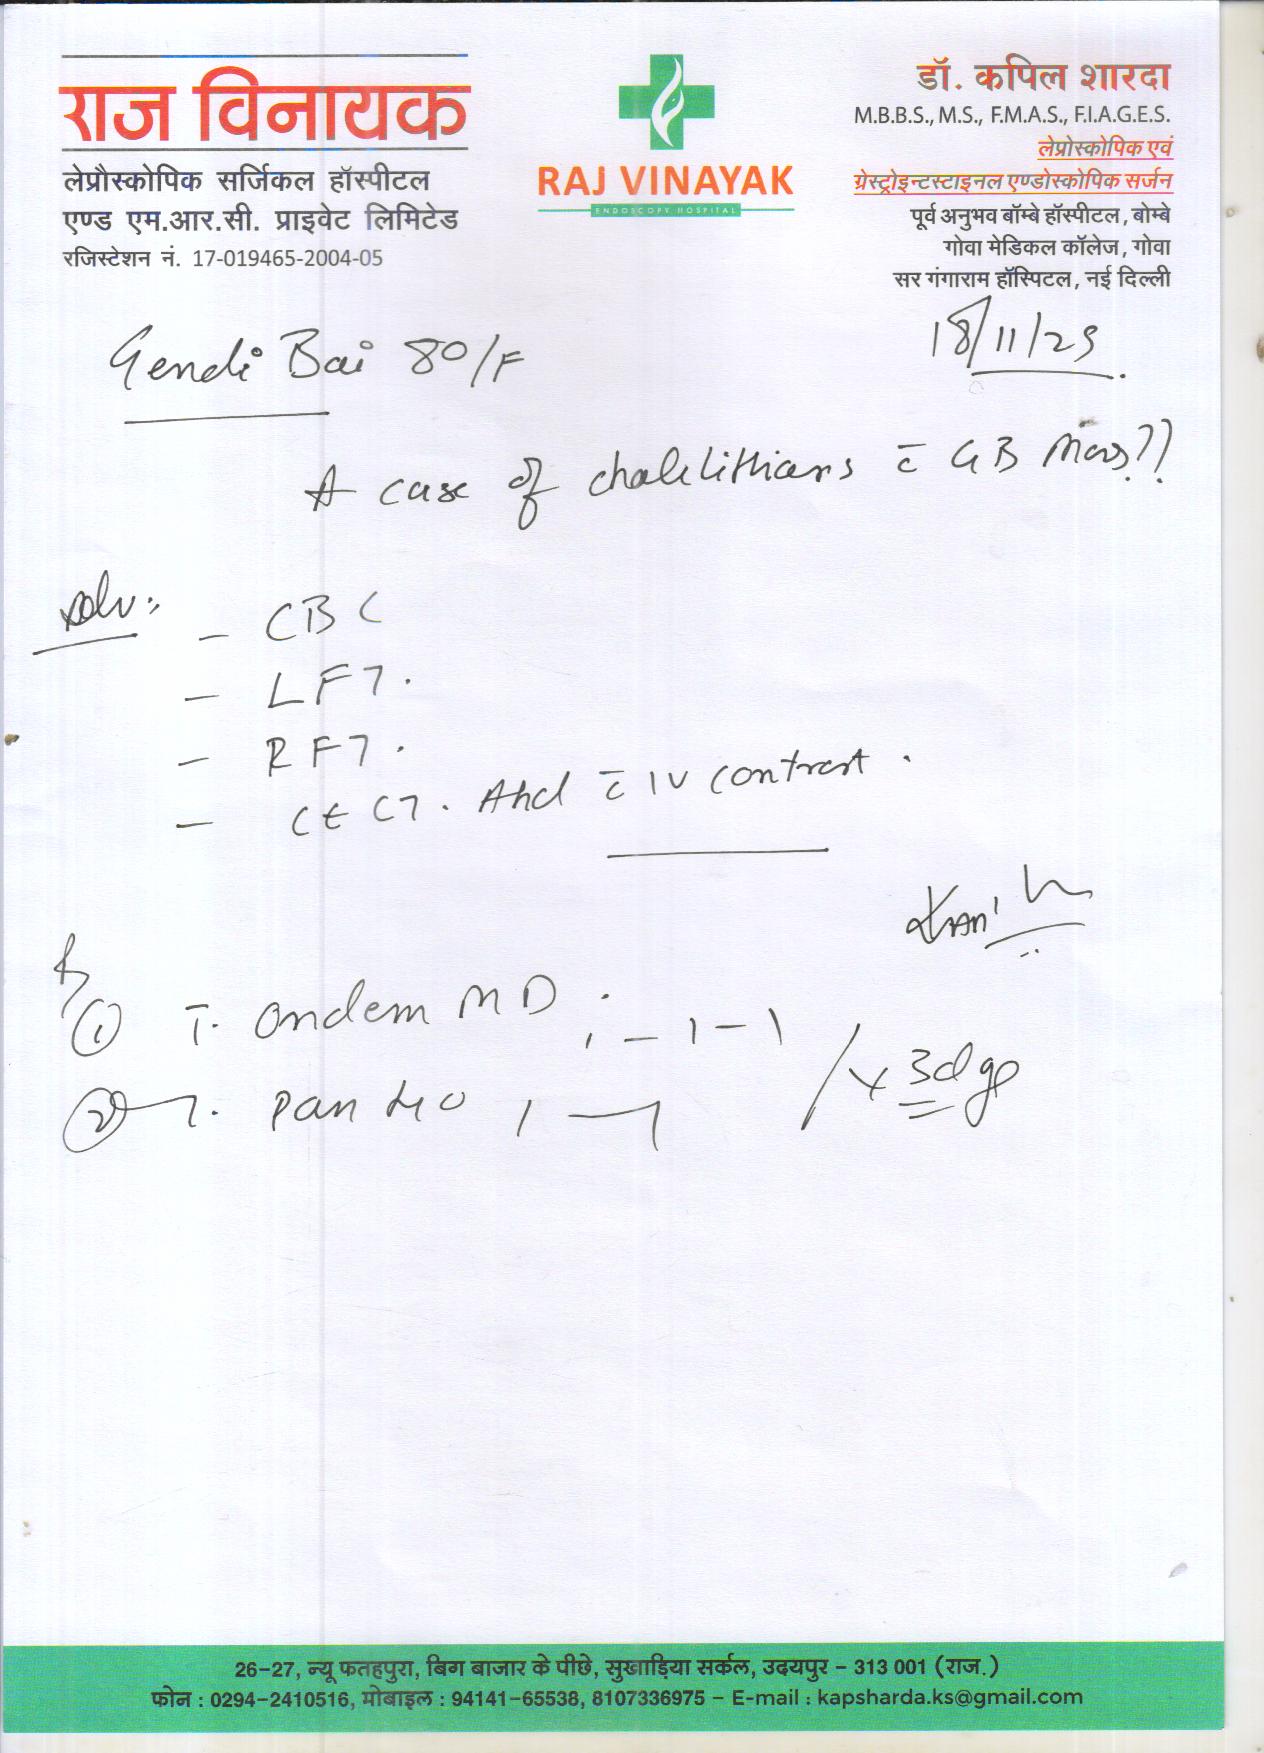 राज विनायक
लेप्रौस्कोपिक सर्जिकल हॉस्पीटल
एण्ड एम.आर.सी. प्राइवेट लिमिटेड
रजिस्टेशन नं. 17-019465-2004-05
RAJ VINAYAK
ENDOSCOPY HOSPITAL
डॉ. कपिल शारदा
M.B.B.S., M.S., F.M.A.S., F.I.A.G.E.S.
लेप्रोस्कोपिक एवं
ग्रेस्ट्रोइन्टस्टाइनल एण्डोस्कोपिक सर्जन
पूर्व अनुभव बॉम्बे हॉस्पीटल, बोम्बे
गोवा मेडिकल कॉलेज, गोवा
सर गंगाराम हॉस्पिटल, नई दिल्ली
18/11/25
Gendi Bai 80/F
A case of c̄ GB Mass??
Adv:
- CBC
- LFT.
- RFT.
- CECT. Abd c̄ IV contrast.
① T. Ondem MD. 1-1-1
② T. Pan 40 / x 3 days
26-27, न्यू फतहपुरा, बिग बाजार के पीछे, सुखाड़िया सर्कल, उदयपुर - 313 001 (राज.)
फोन : 0294-2410516, मोबाइल : 94141-65538, 8107336975 - E-mail : kapsharda.ks@gmail.com